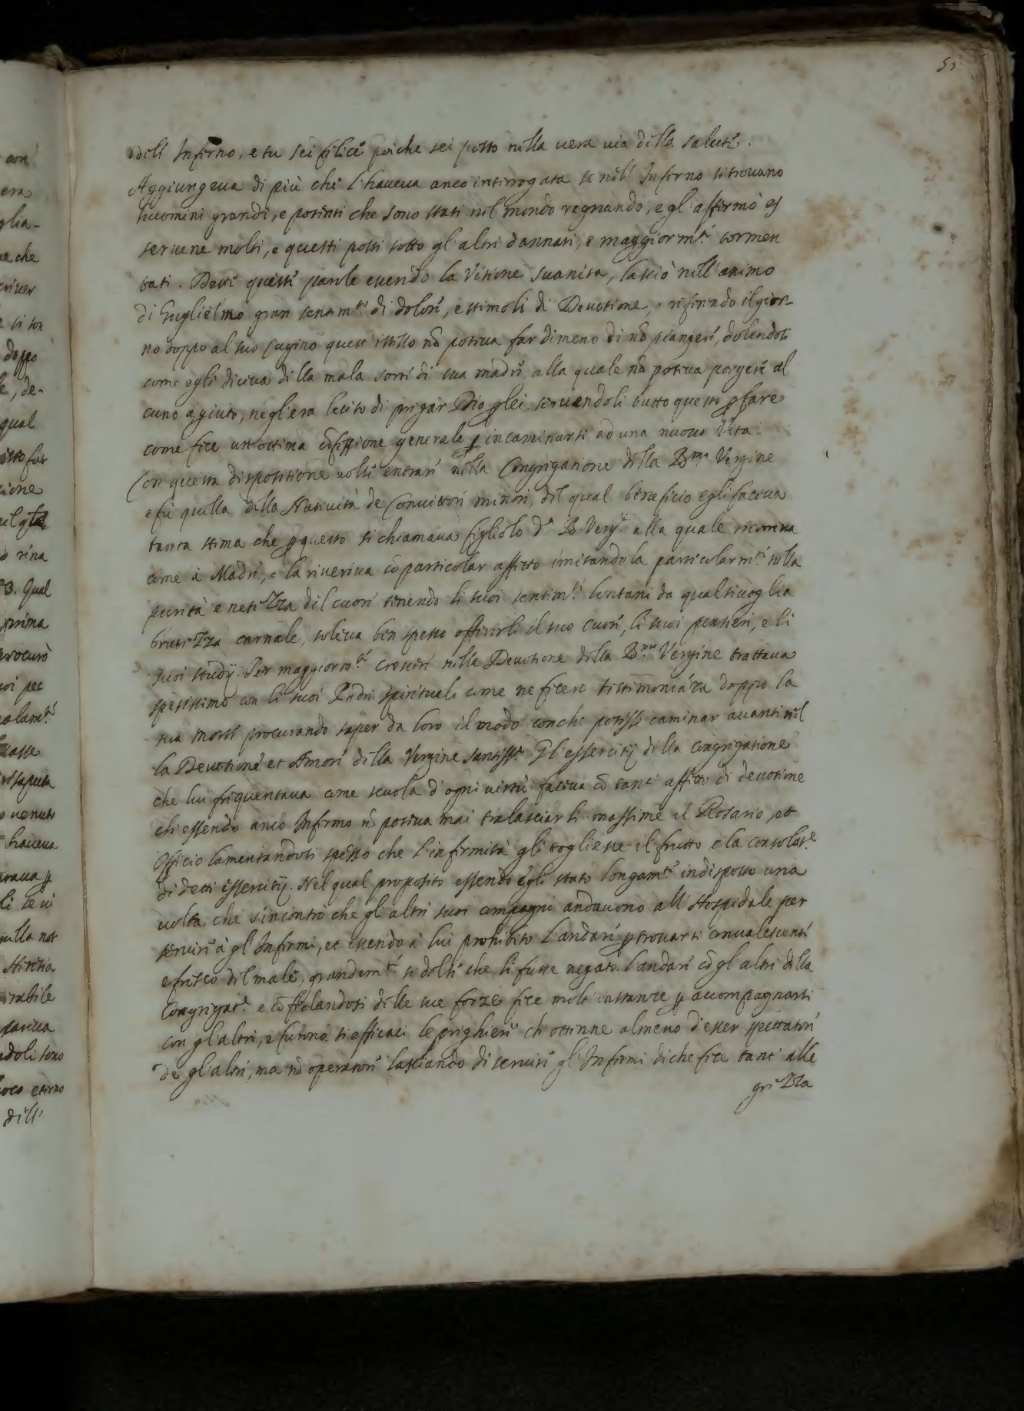 51
dell' Inferno, e tu sei felice poiche sei posto nella vera via della salute.
Aggiungeva di più che l'haveva anco interrogata se nell' Inferno si trovano
huomini grandi, e potenti che sono stati nel mondo regnando, e gl'affermò es
servene molti, e questi posti sotto gl'altri dannati, e maggiorm.te tormen
tati. Dette queste parole essendo la Visione svanita, lasciò nell'animo
di Guglielmo gran sentim.ti di dolore, e stimoli di Devotione, e riferendo il gior
no doppo al suo Cugino quest' istesso nõ poteva far dimeno di nõ piangere, dolendosi
come egli diceva della mala sorte di sua madre, alla quale nõ poteva porgere al
cuno agiuto, negl'era lecito di pregar Dio ꝑ lei, servendoli tutto questo ꝑ fare
come fece un'ottima cõfessione generale ꝑ incaminarsi ad una nuova Vita.
Con questa dispositione volse entrare nella Congregatione della B.ma Vergine
e fù quella della Natività de Convittori minori, del qual beneficio egli faceva
tanta stima che ꝑ questo si chiamava figliolo d.a B. Verg.e alla quale
come à Madre, e la riveriva cõ particolar affetto imitandola particolarm.te nella
purità e netezza del cuore tenendo li suoi sentim.ti lontani da qualsivoglia
brutezza carnale, soleva ben spesso offerirli il suo cuore, li suoi pensieri, e li
suoi studij. Per maggiorm.te crescere nella Devotione della B.ma Vergine trattava
spessissimo con li suoi Padri spirituali come ne fecero testimonianza doppo la
sua morte procurando saper da loro il modo con che potesse caminar avanti nel
la Devotione et Amore della Vergine santiss.a Gl'essercitij della Congregatione
che lui frequentava come scuola d'ogni virtù faceva cõ tant' affetto di devotione
ch'essendo anco Infermo ñ poteva mai tralasciarli massime il Rosario, et
Officio lamentandosi spesso che l'infermità gli togliesse il frutto e la consolat.e
di detti Essercitij. Nel qual proposito essendo egli stato longam.te indisposto una
volta che s'incontrò che gl'altri suoi compagni andavono all'Hospidale per
servire à gl'Infermi, et essendo à lui prohibito l'andare ꝑ trovarsi convalescente
e fresco del male, grandem.te si dolse che li fusse negato l'andare cõ gl'altri della
Congregat.e e delle sue forze fece molte instanze ꝑ accompagnarsi
con gl'altri, e furono sì efficaci le preghiere ch'ottenne almeno d'esser spettatore
de gl'altri, ma nõ operatore lasciando di servire gl'Infermi di che fece tant' alle
grezza